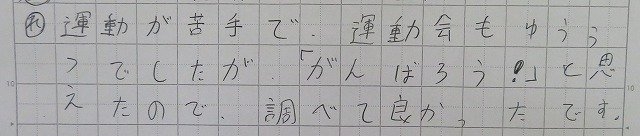 れ 運動が苦手で、運動会もゆうう
つでしたが、「がんばろう!」と思
えたので、調べて良かったです。